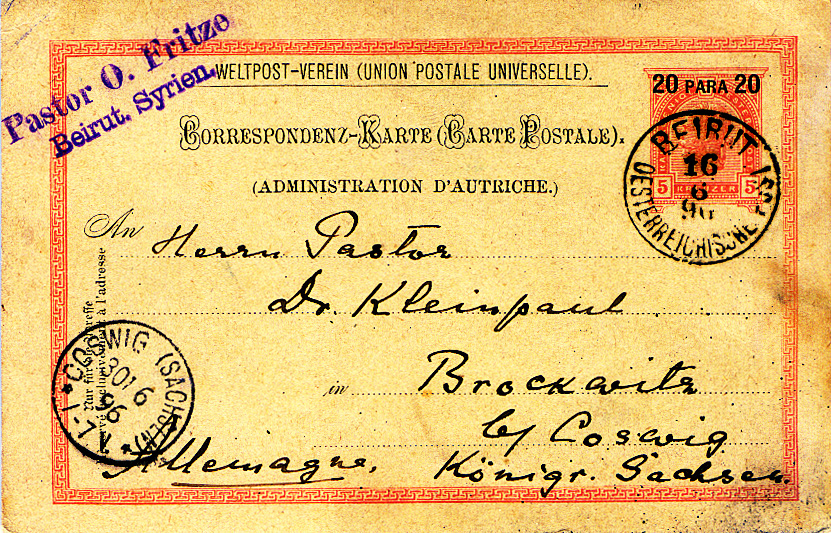 Pastor O. Fritze
Beirut. Syrien.
WELTPOST-VEREIN (UNION POSTALE UNIVERSELLE).
20 PARA 20
CORRESPONDENZ-KARTE (CARTE POSTALE).
(ADMINISTRATION D'AUTRICHE.)
5 KREUZER 5
BEIRUT
16
6
96
OESTERREICHISCHE
An Herrn Pastor
Dr. Kleinpaul
in Brockwitz
b/ Coswig
Allemagne. Königr. Sachsen.
Nur für die Adresse
réservé exclusivement à l'adresse
COSWIG (SACHSEN)
30 6
96